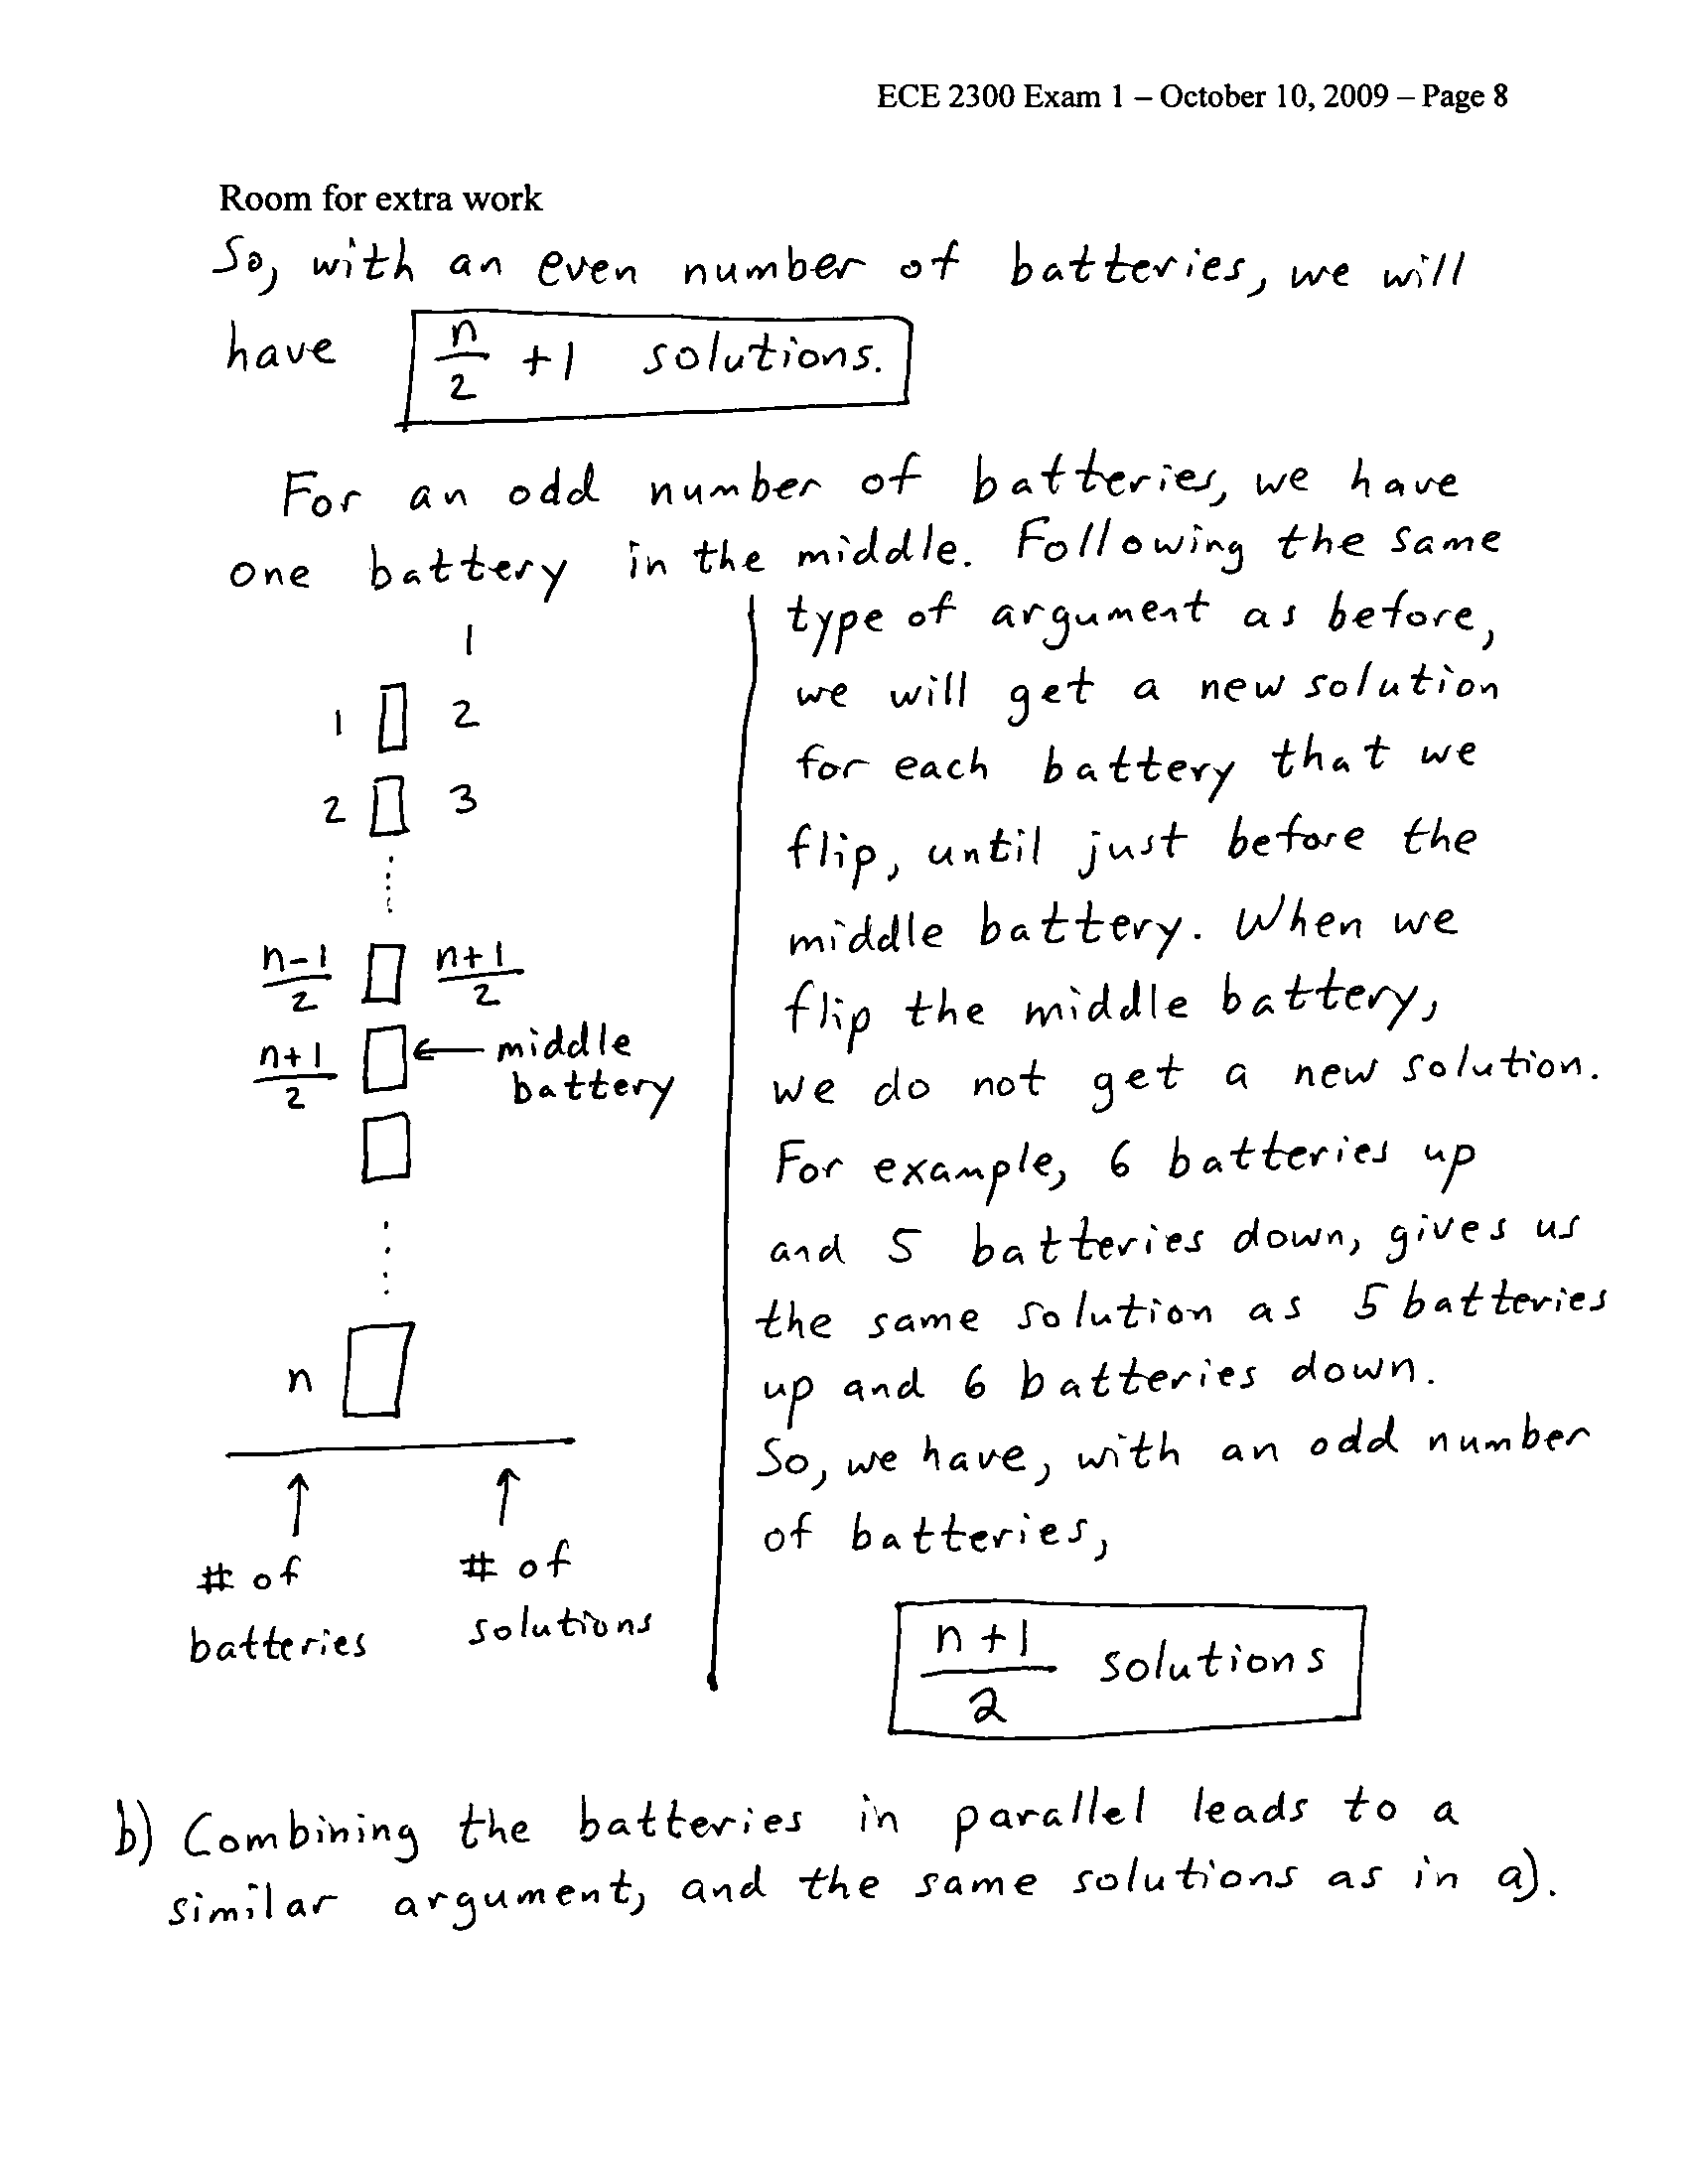 ECE 2300 Exam 1 – October 10, 2009 – Page 8
Room for extra work
So, with an even number of batteries, we will
have n/2 + 1 solutions.
For an odd number of batteries, we have
one battery in the middle. Following the same
type of argument as before,
we will get a new solution
for each battery that we
flip, until just before the
middle battery. When we
flip the middle battery,
we do not get a new solution.
For example, 6 batteries up
and 5 batteries down, gives us
the same solution as 5 batteries
up and 6 batteries down.
So, we have, with an odd number
of batteries,
(n+1)/2 solutions
1
1 2
2 3
(n-1)/2 (n+1)/2
(n+1)/2 ← middle
battery
n
↑ ↑
# of # of
batteries solutions
b) Combining the batteries in parallel leads to a
similar argument, and the same solutions as in a).